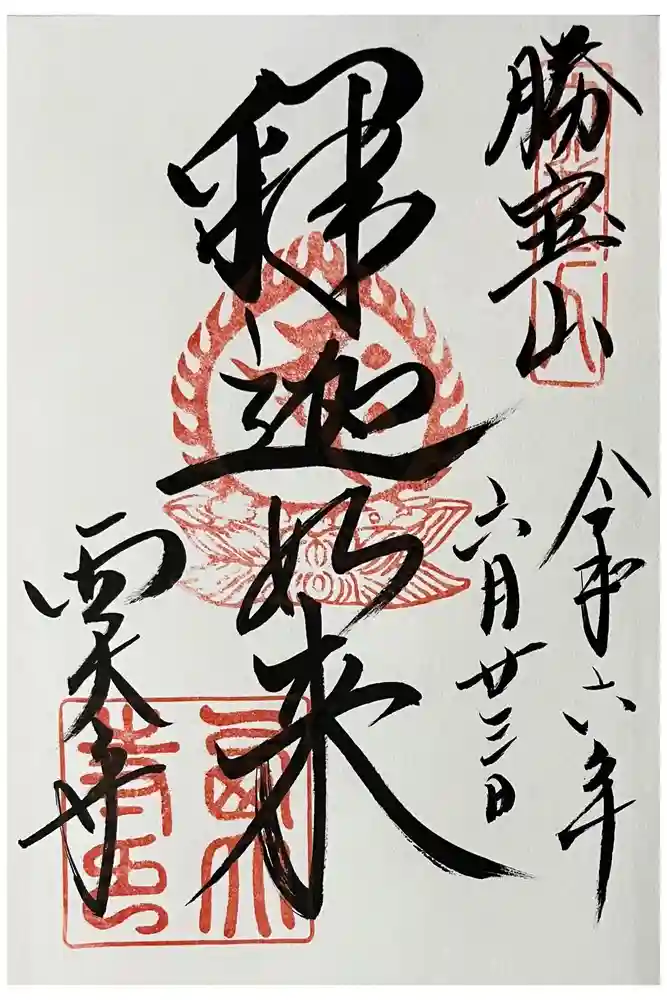 勝宝山
令和六年
六月廿三日
釈迦如来
西天寺